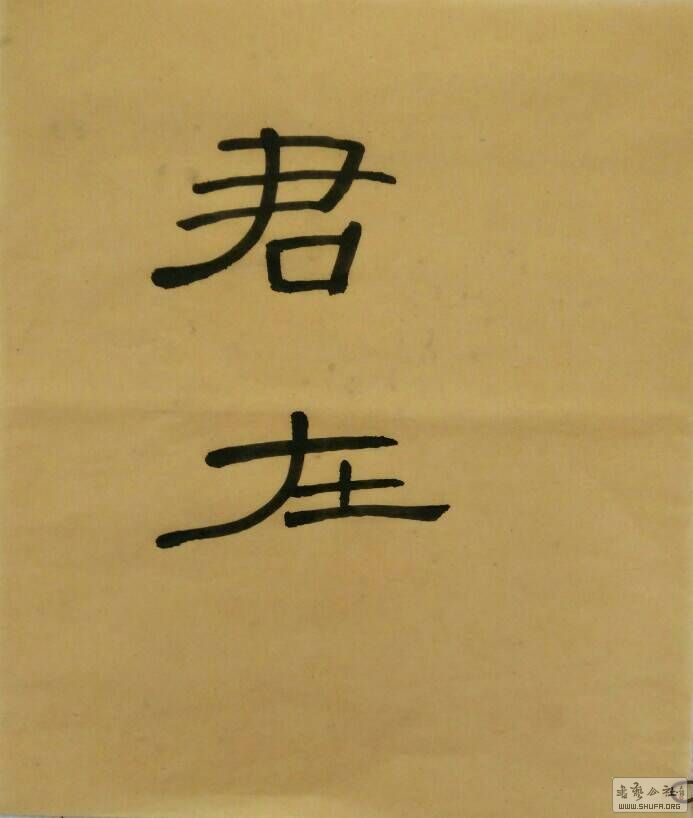 君
在
书艺公社
WWW.SHUFA.ORG